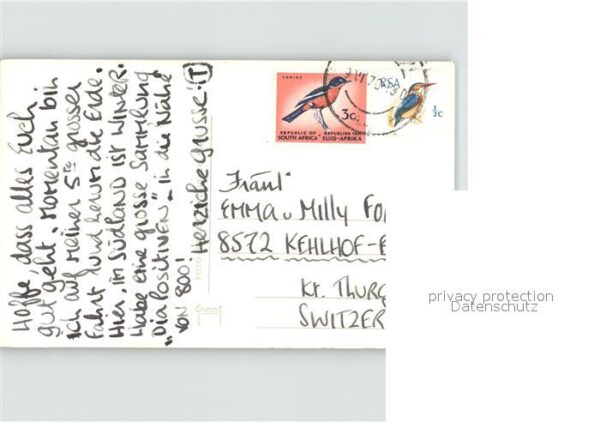 Hoffe, dass alles Euch
gut geht. Momentan bin
ich auf meiner 5ten grossen
Fahrt rund herum die Erde.
Hier, im Südland ist Winter.
Habe eine grosse Sammlung
"Diapositiven" in die Nähe
von 800!
Herzliche Grüsse!
SHRIKE
3c
REPUBLIC OF SOUTH AFRICA
REPUBLIEK VAN SUID-AFRIKA
RSA
½c
Fräul
EMMA u Milly
8572 KEHLHOF-
Kt. THURG
SWITZER
FOTO
privacy protection
Datenschutz